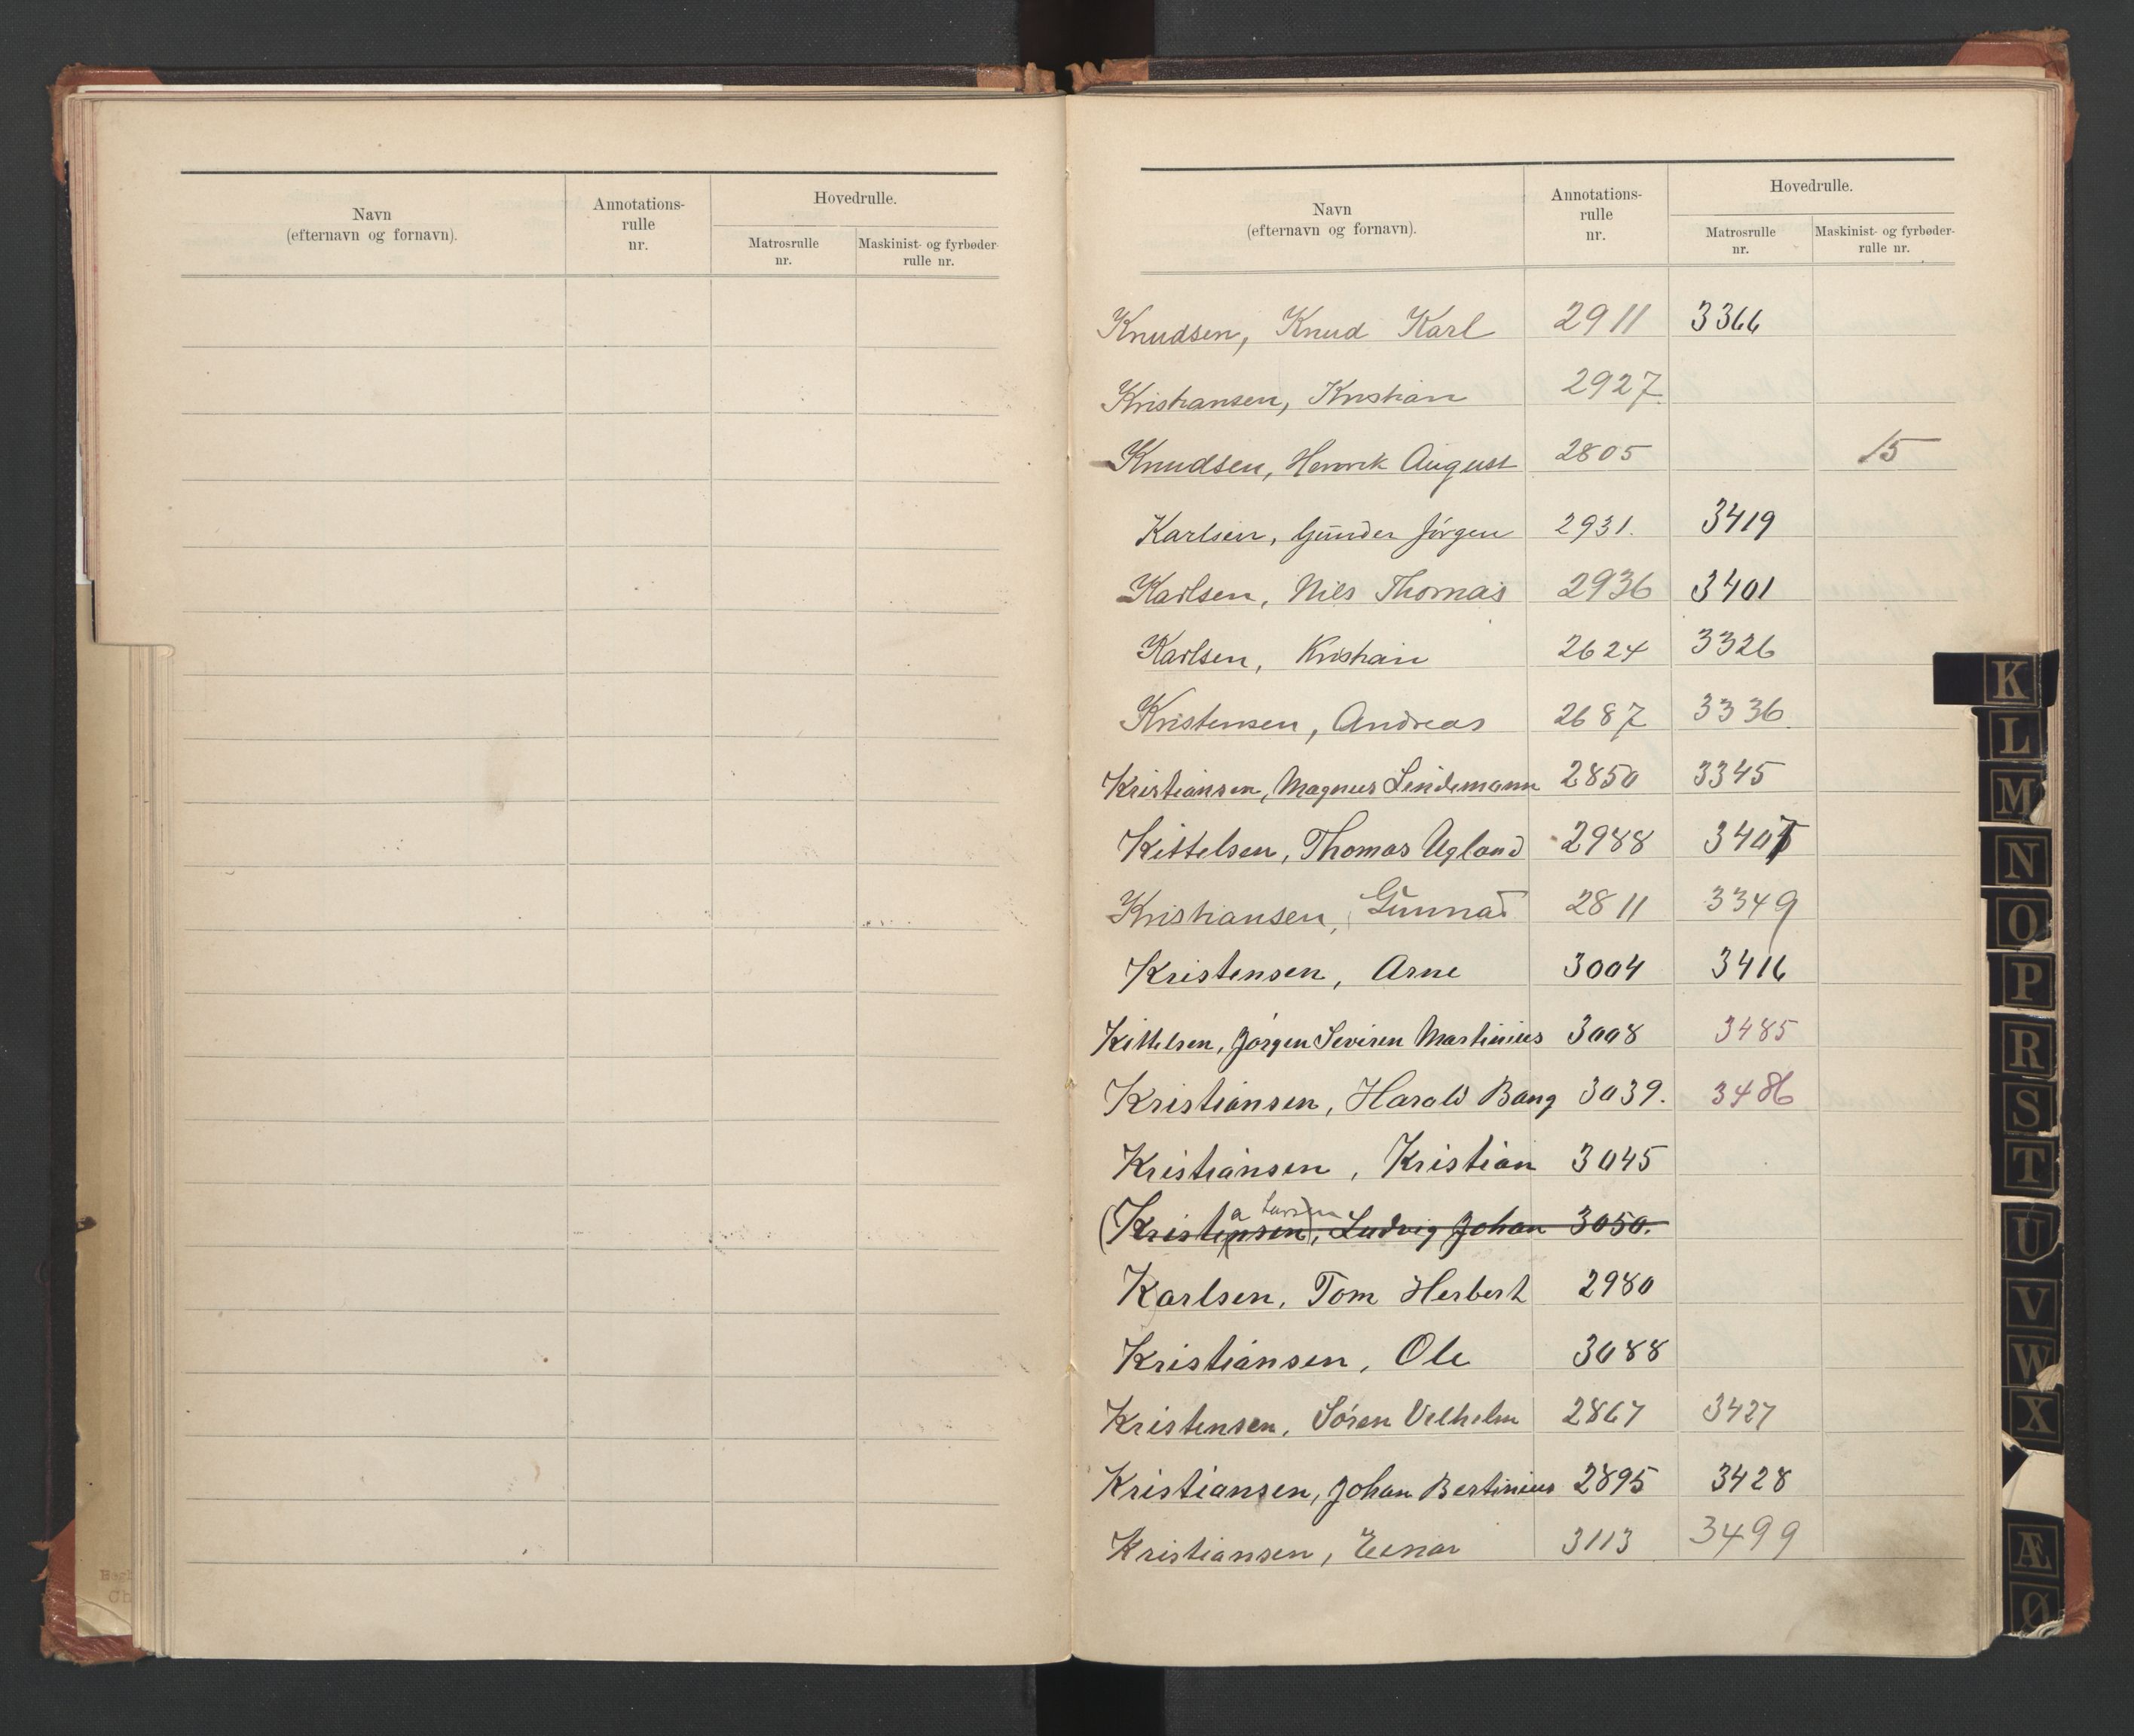 Navn
(efternavn og fornavn).
Annotations-
rulle
nr.
Hovedrulle.
Matrosrulle
nr.
Maskinist- og fyrbøder-
rulle nr.
Navn
(efternavn og fornavn).
Annotations-
rulle
nr.
Hovedrulle.
Matrosrulle
nr.
Maskinist- og fyrbøder-
rulle nr.
Knudsen, Knud Karl 2911 3366
Kristiansen, Kristian 2927
Knudsen, Henrik August 2805 15
Karlsen, Gunder Jörgen 2931. 3419
Karlsen, Nils Thomas 2936 3401
Karlsen, Kristian 2624 3326
Kristensen, Andreas 2687 3336
Kristiansen, Magnus Lindemann 2850 3345
Kittelsen, Thomas Ugland 2988 3407
Kristiansen, Gunnar 2811 3349
Kristensen, Arne 3004 3416
Kittelsen, Jörgen Severen Martinius 3008 3485
Kristiansen, Harald Bang 3039. 3486
Kristiansen, Kristian 3045
a Larsen
(Kristensen), Ludvig Johan 3050.
Karlsen, Tom Herbert 2980
Kristiansen, Ole 3088
Kristensen, Sören Velhelm 2867 3427
Kristiansen, Johan Bertinius 2895 3428
Kristiansen, Einar 3113 3499
K
L
M
N
O
P
R
S
T
U
V
W
X
Æ
Ø